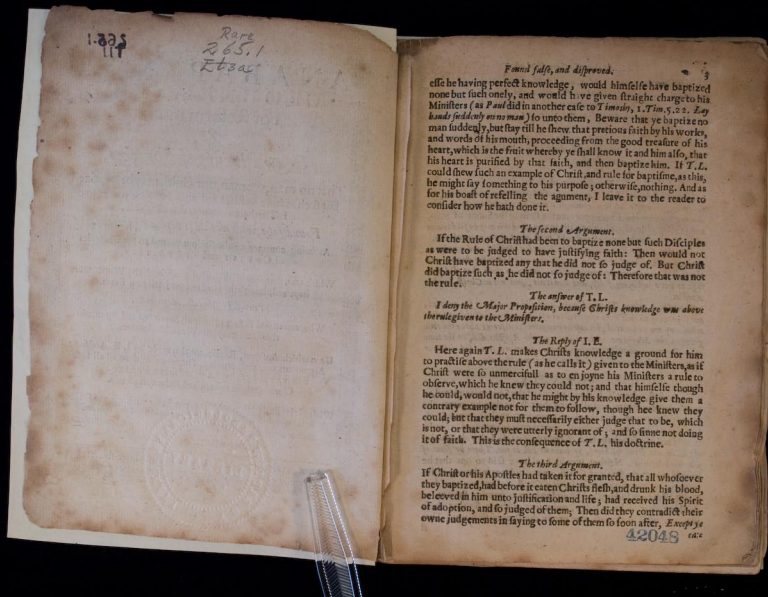 265.1
111
Rare
265.1
Et3ac
Found false, and disproved.
3
esse he having perfect knowledge, would himselfe have baptized
none but such onely, and would have given straight charge to his
Ministers (as Paul did in another case to Timothy, 1.Tim.5.22. Lay
hands suddenly on no man) so unto them, Beware that ye baptize no
man suddenly, but stay till he shew that pretious faith by his works,
and words of his mouth, proceeding from the good treasure of his
heart, which is the fruit whereby ye shall know it and him also, that
his heart is purified by that faith, and then baptize him. If T.L.
could shew such an example of Christ, and rule for baptisme, as this,
he might say something to his purpose; otherwise, nothing. And as
for his boast of refelling the agument, I leave it to the reader to
consider how he hath done it.
The second Argument.
If the Rule of Christ had been to baptize none but such Disciples
as were to be judged to have justifying faith: Then would not
Christ have baptized any that he did not so judge of. But Christ
did baptize such as he did not so judge of: Therefore that was not
the rule.
The answer of T. L.
I deny the Major Proposition, because Christs knowledge was above
the rule given to the Ministers.
The Reply of I. E.
Here again T. L. makes Christs knowledge a ground for him
to practise above the rule (as he calls it) given to the Ministers, as if
Christ were so unmercifull as to enjoyne his Ministers a rule to
observe, which he knew they could not; and that himselfe though
he could, would not, that he might by his knowledge give them a
contrary example not for them to follow, though hee knew they
could; but that they must necessarily either judge that to be, which
is not, or that they were utterly ignorant of; and so sinne not doing
it of faith. This is the consequence of T. L. his doctrine.
The third Argument.
If Christ or his Apostles had taken it for granted, that all whosoever
they baptized, had before it eaten Christs flesh, and drunk his blood,
beleeved in him unto justification and life; had received his Spirit
of adoption, and so judged of them; Then did they contradict their
owne judgements in saying to some of them so soon after, Except ye
eat
42048